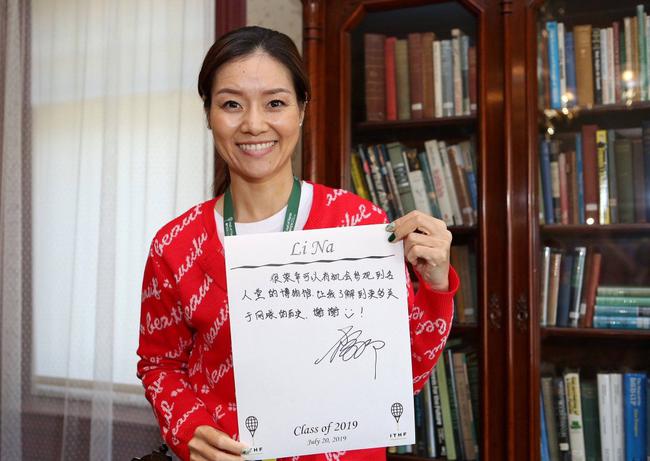 Li Na
很荣幸可以有机会参观到名
人堂的博物馆. 让我了解到更多关
于网球的历史. 谢谢☺!
Class of 2019
July 20, 2019
ITHF
beautiful